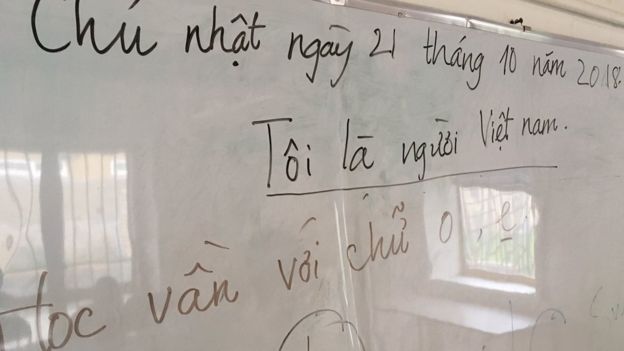 Chủ nhật ngày 21 tháng 10 năm 2018.
Tôi là người Việt nam.
Học vần với chữ o, e